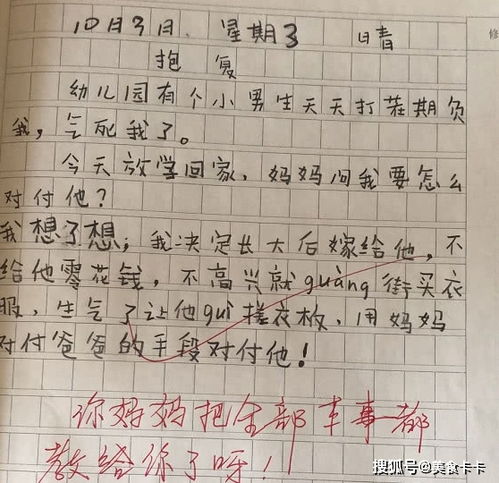 10月9日. 星期3 日青
抱复
幼儿园有个小男生天天打茬期负
我,气死我了。
今天放学回家,妈妈问我要怎么
对付他?
我想了想,我决定长大后嫁给他,不
给他零花钱,不高兴就guàng街买衣
服,生气了让他guì搓衣板,用妈妈
对付爸爸的手段对付他!
你妈妈把全部本事都
教给你了呀!
搜狐号@美食卡卡